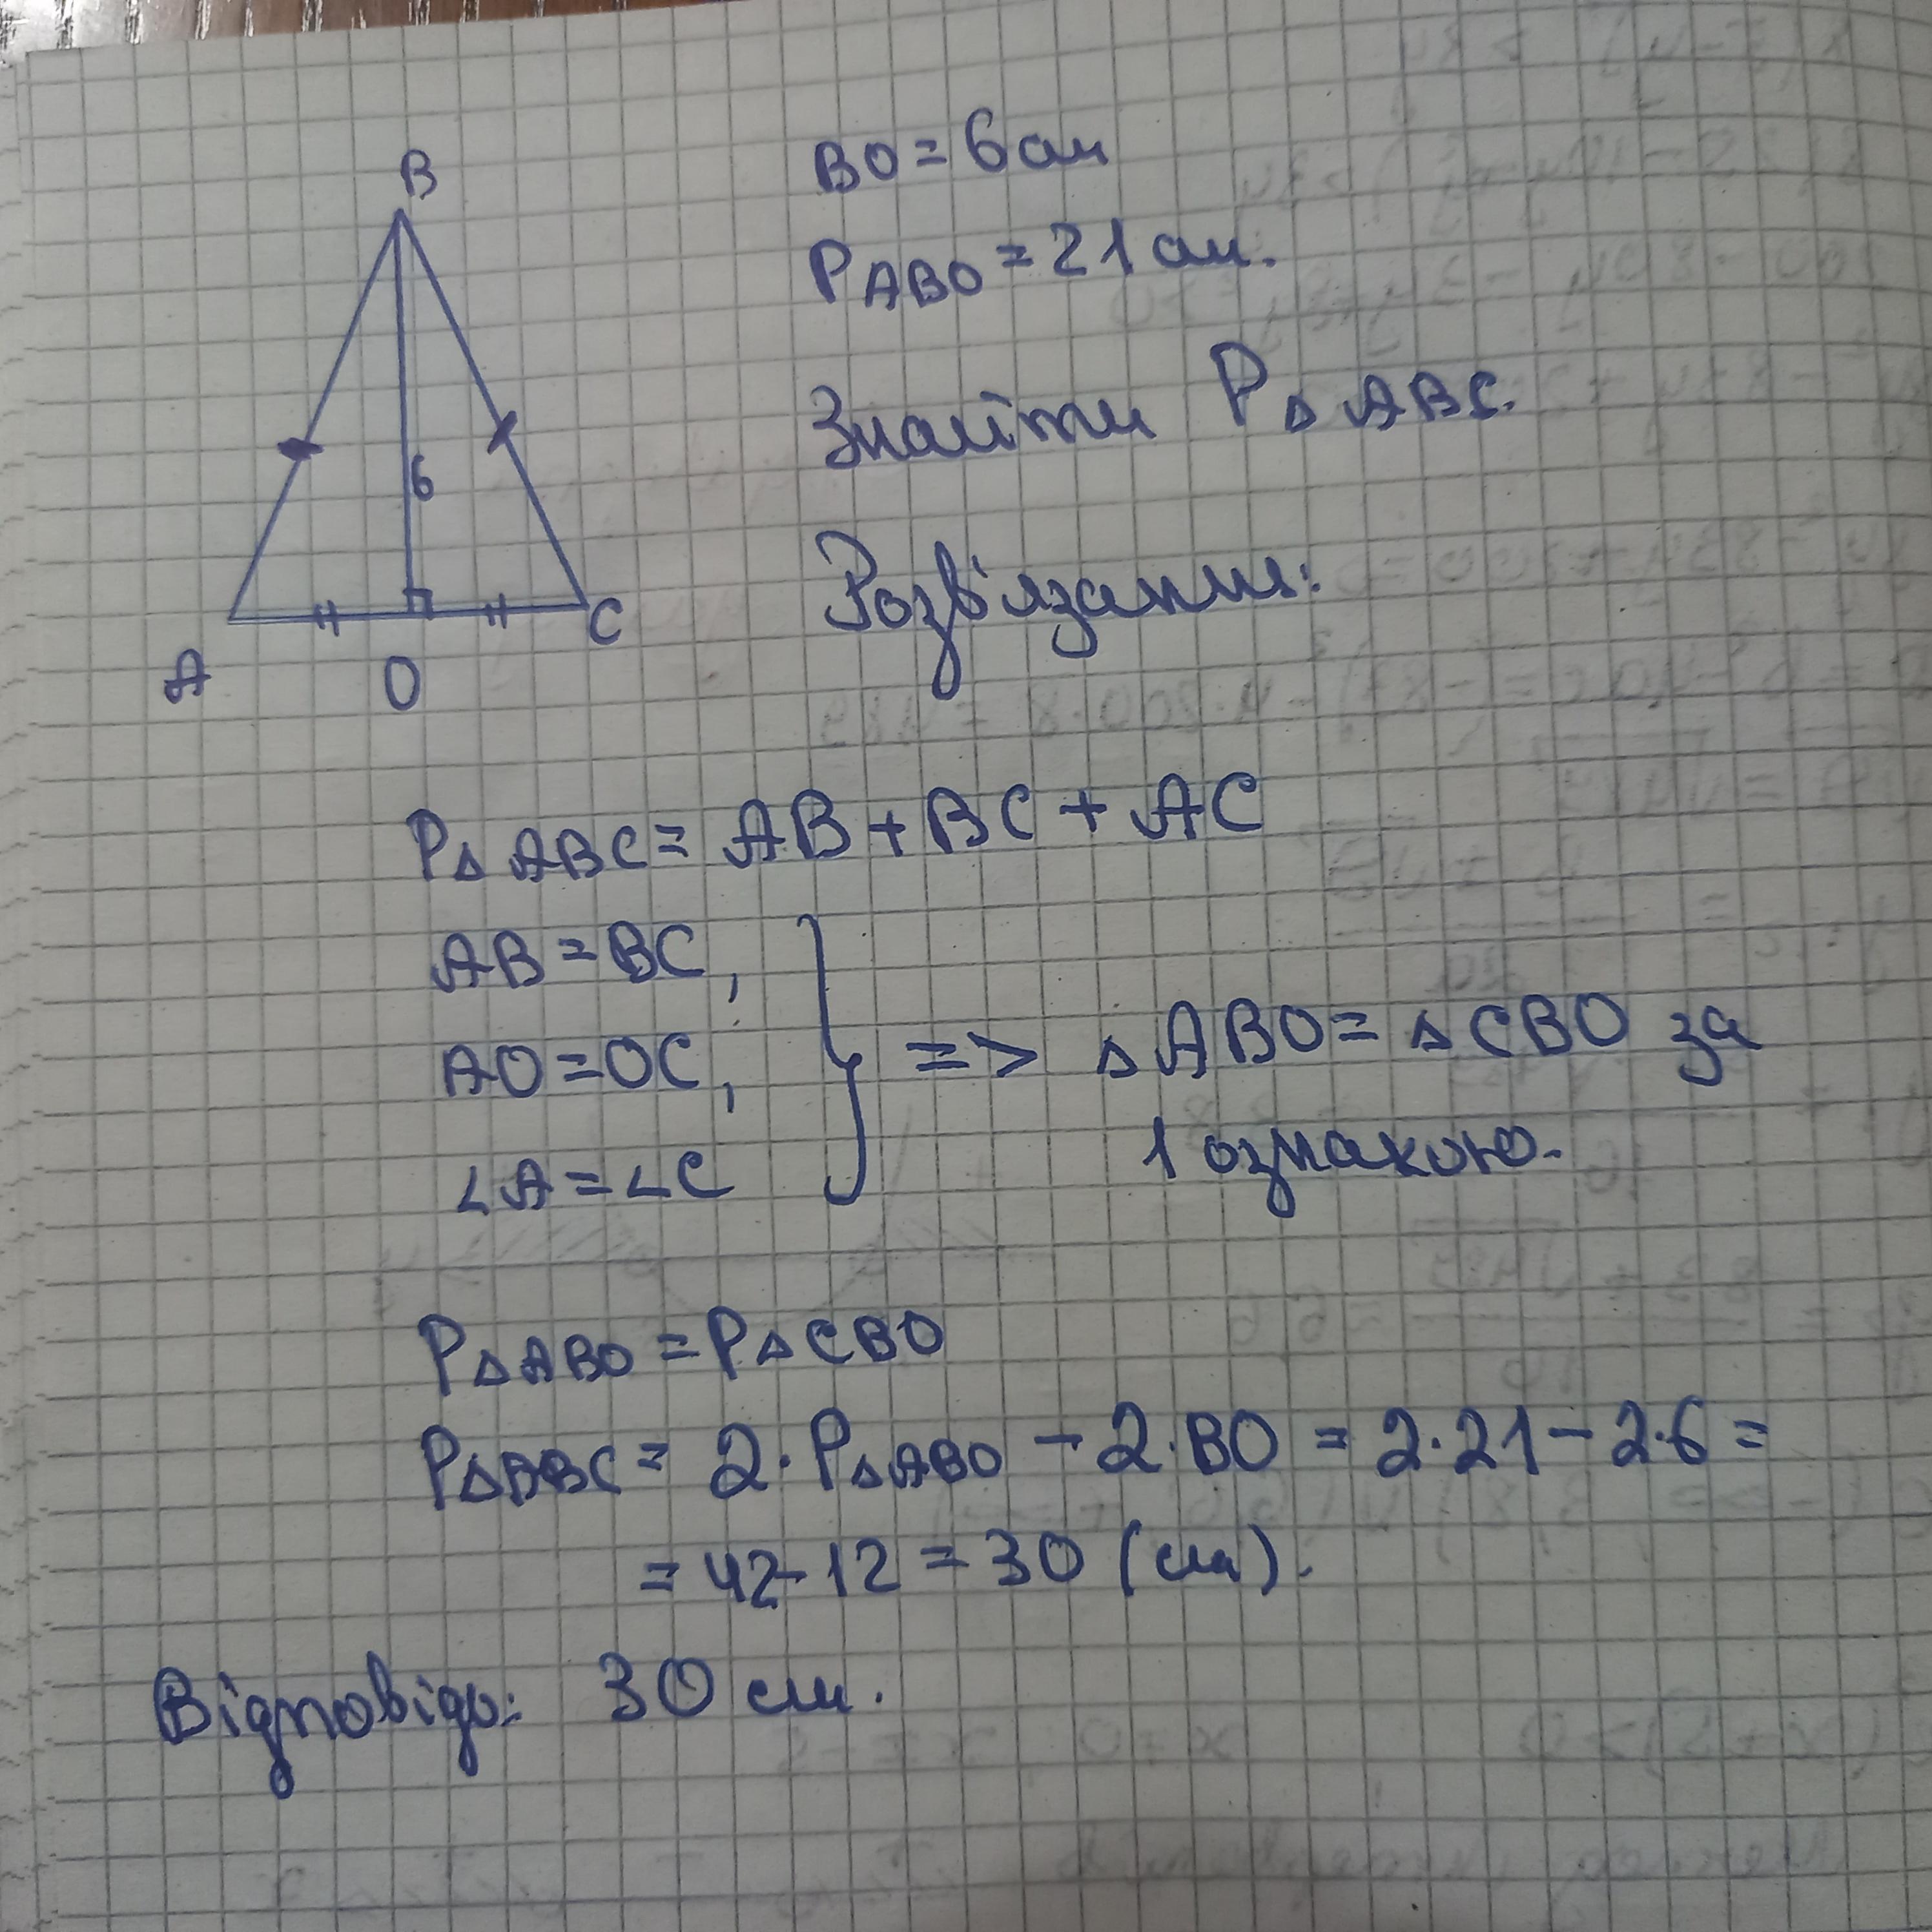 B
BO = 6 см
P ABO = 21 см.
Знайти P△ABC.
6
Розв'язання:
A O C
P△ABC = AB + BC + AC
AB = BC,
AO = OC, => △ABO = △CBO за
1 ознакою.
∠A = ∠C
P△ABO = P△CBO
P△ABC = 2·P△ABO - 2·BO = 2·21 - 2·6 =
= 42 - 12 = 30 (см).
Відповідь: 30 см.